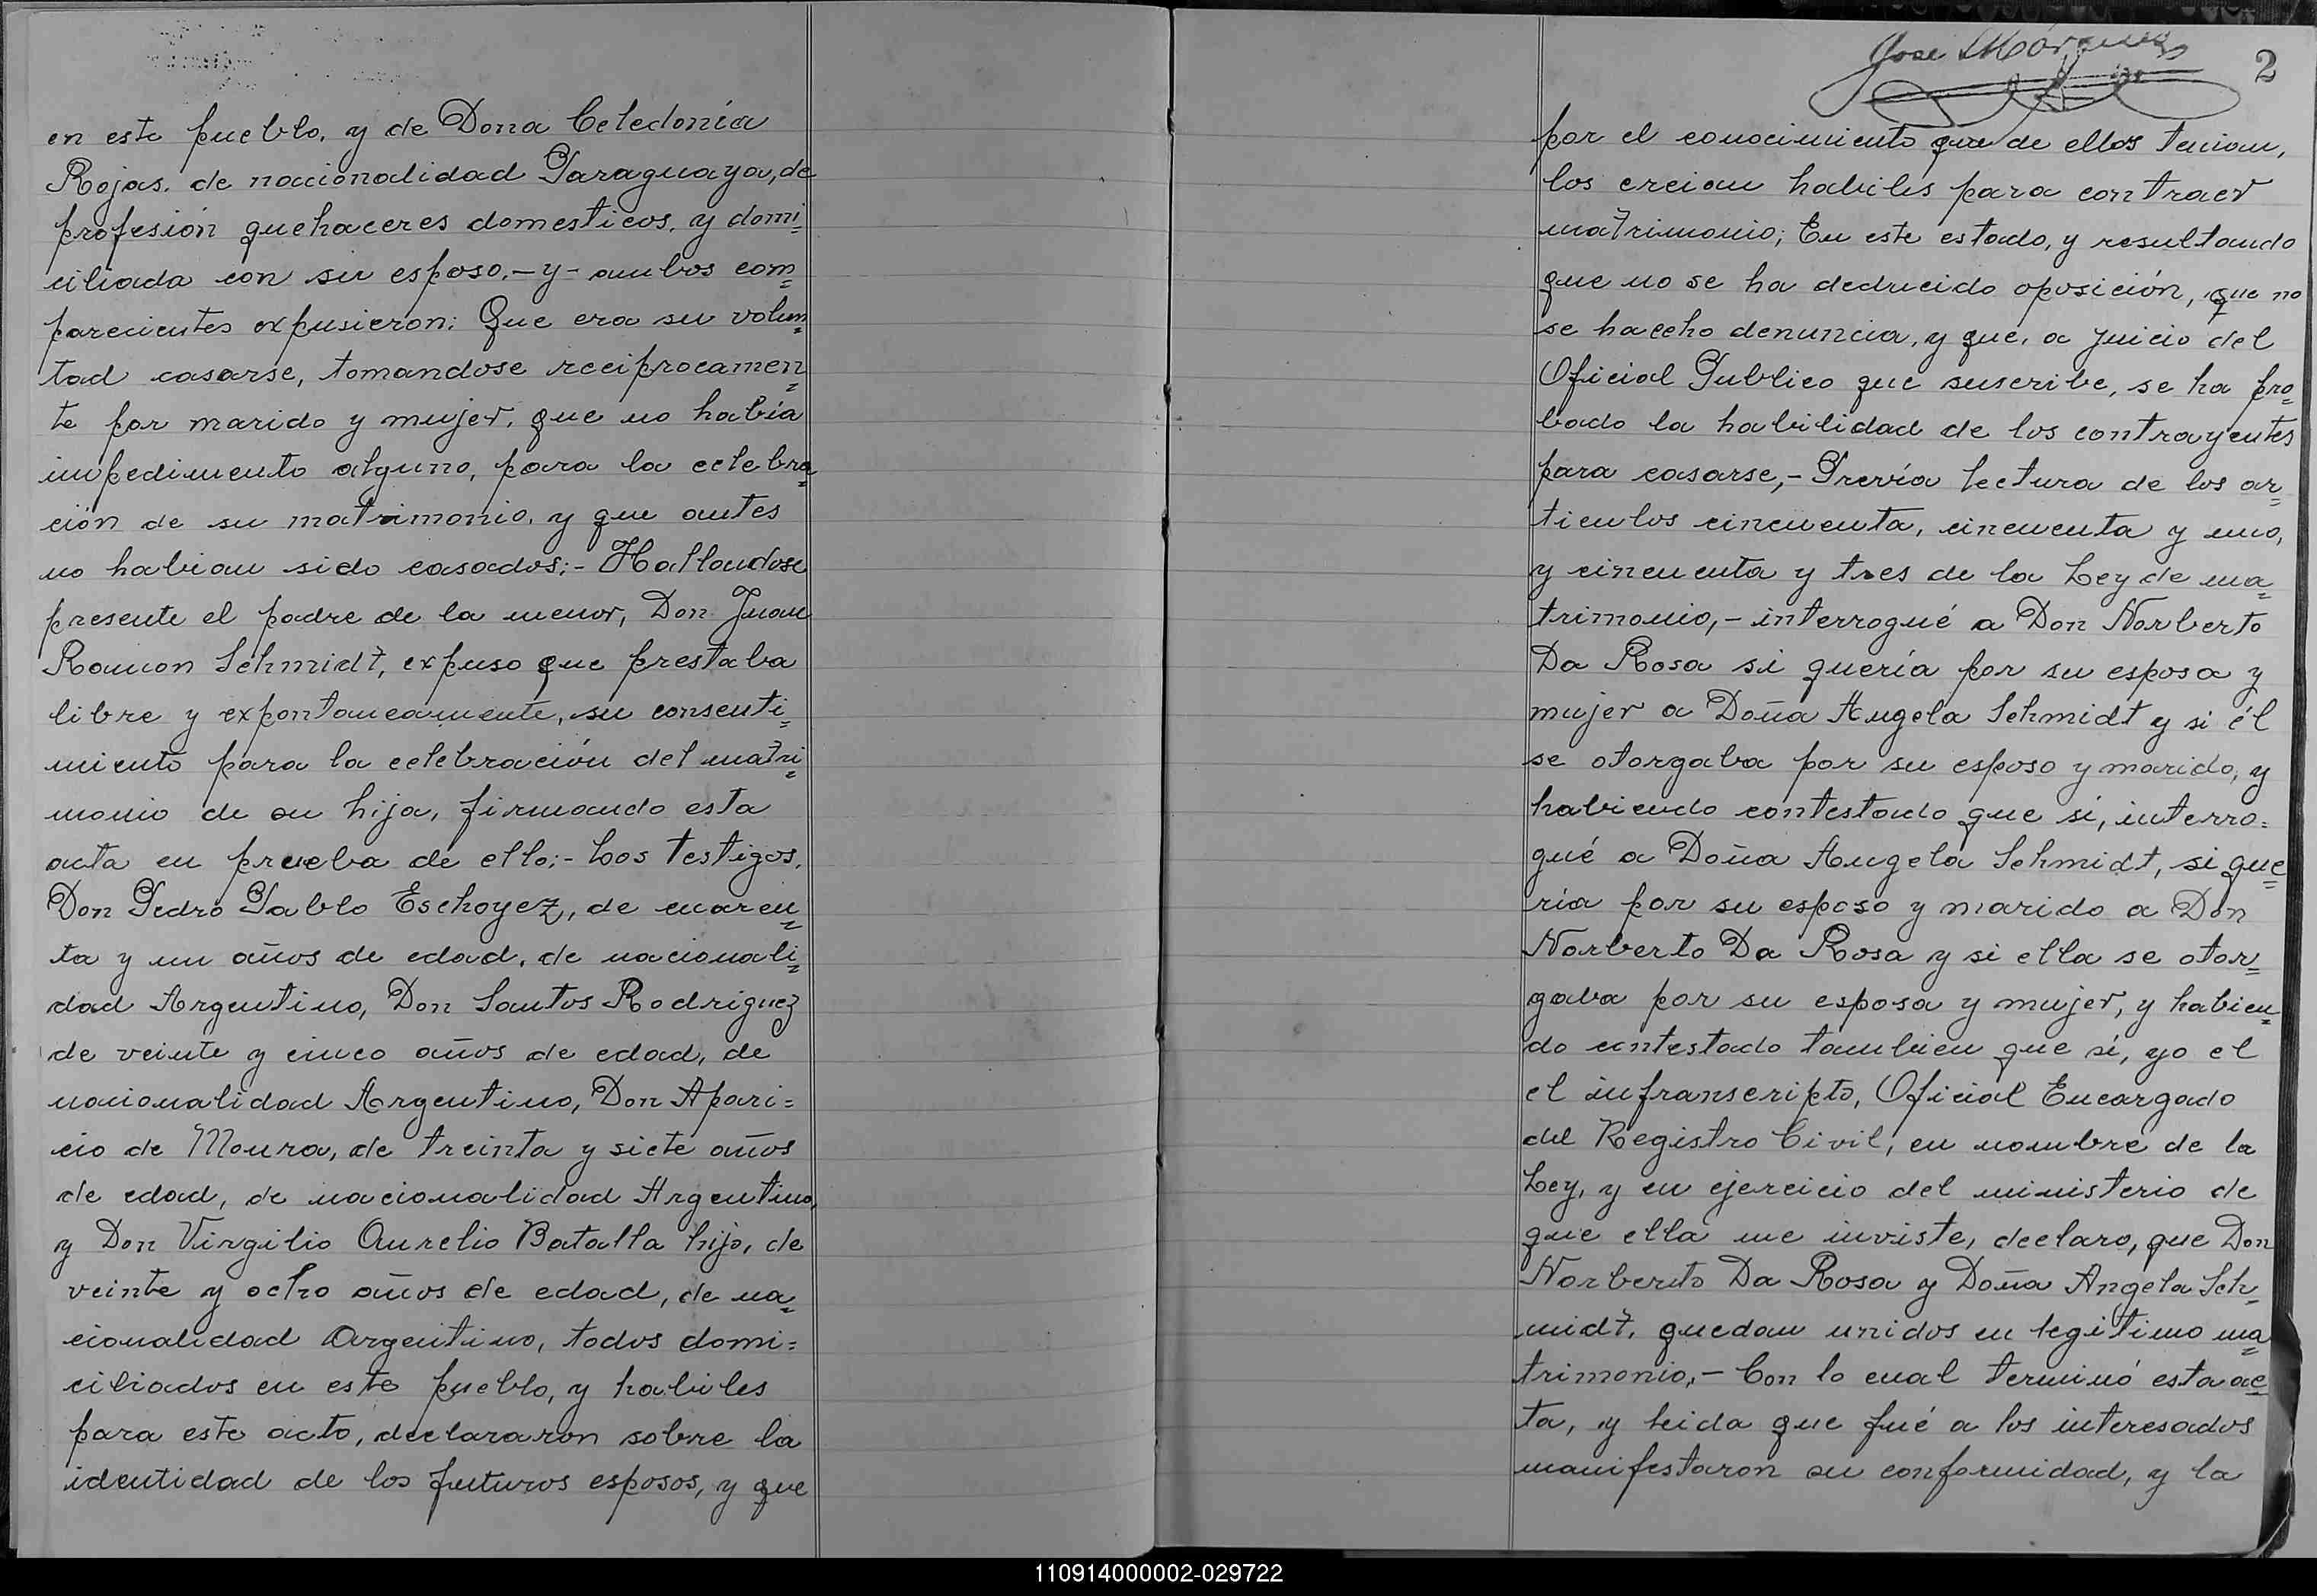 en este pueblo, y de Dona Celedonía
Rojas, de nacionalidad Paraguaya, de
profesión quehaceres domesticos, y domi=
ciliada con su esposo.- y - ambos com=
parecientes expusieron: Que era su volun=
tad casarse, tomandose reciprocamen=
te por marido y mujer, que no había
impedimento alguno, para la celebra=
ción de su matrimonio, y que antes
no habian sido casados:- Hallandose
presente el padre de la menor, Don Juan
Ramon Schmidt, expuso que prestaba
libre y expontaneamente, su consenti=
miento para la celebración del matri=
monio de su hija, firmando esta
acta en prueba de ello:- Los testigos,
Don Pedro Pablo Eschoyez, de cuaren=
ta y un años de edad, de nacionali=
dad Argentino, Don Santos Rodriguez
de veinte y cinco años de edad, de
nacionalidad Argentino, Don Apari=
cio de Moura, de treinta y siete años
de edad, de nacionalidad Argentino,
y Don Virgilio Aurelio Batalla hijo, de
veinte y ocho años de edad, de na=
cionalidad Argentino, todos domi=
ciliados en este pueblo, y habiles
para este acto, declararon sobre la
identidad de los futuros esposos, y que
Jose Márquez
2
por el conocimiento que de ellos tenian,
los creian habiles para contraer
matrimonio; En este estado, y resultando
que no se ha deducido oposición, que no
se haceho denuncia, y que, a juicio del
Oficial Publico que suscribe, se ha pro=
bado la habilidad de los contrayentes
para casarse,- Previa lectura de los ar=
ticulos cincuenta, cincuenta y uno,
y cincuenta y tres de la Ley de ma=
trimonio,- interrogué a Don Norberto
Da Rosa si quería por su esposa y
mujer a Doña Angela Schmidt y si él
se otorgaba por su esposo y marido, y
habiendo contestado que sí, interro=
gué a Doña Angela Schmidt, si que=
ria por su esposo y marido a Don
Norberto Da Rosa y si ella se otor=
gaba por su esposa y mujer, y habien=
do contestado tambien que sí, yo el
el infranscripto, Oficial Encargado
del Registro Civil, en nombre de la
Ley, y en ejercicio del ministerio de
que ella me inviste, declaro, que Don
Norberto Da Rosa y Doña Angela Sch=
midt, quedan unidos en legitimo ma=
trimonio,- Con lo cual terminó esta ac=
ta, y leida que fué a los interesados
manifestaron su conformidad, y la
110914000002-029722